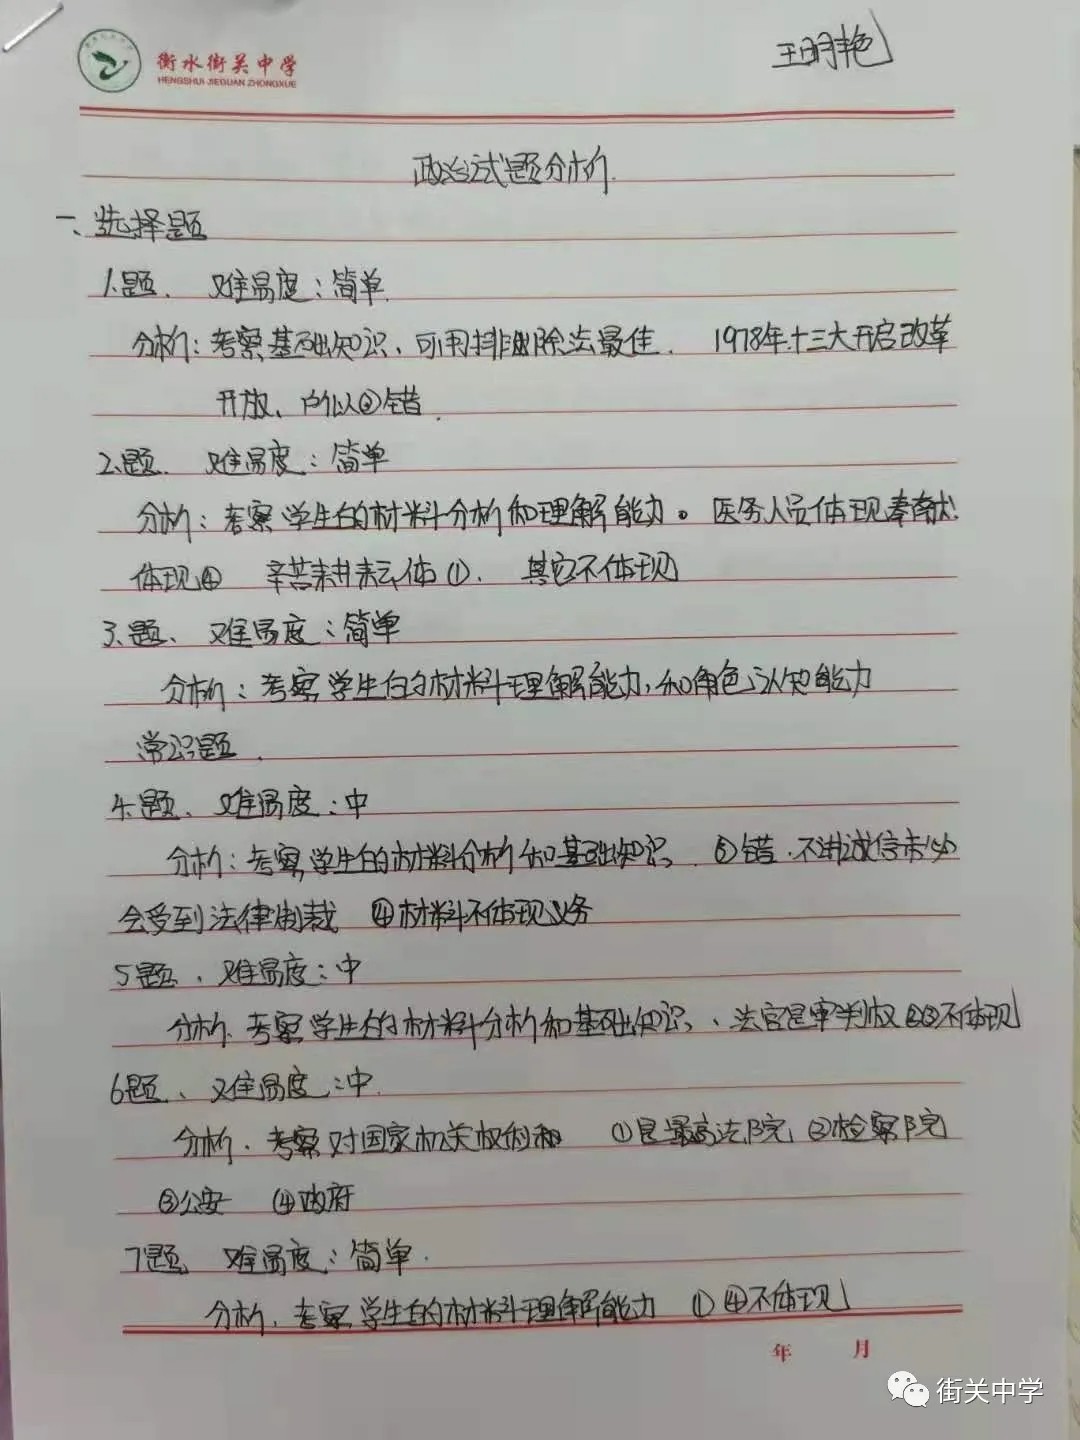 衡水街关中学
HENGSHUI JIEGUAN ZHONGXUE
王明艳
政治试题分析.
一、选择题
1.题、难易度:简单.
分析:考察基础知识、可用排除法最佳. 1978年.十三大开启改革
开放、所以②错.
2.题. 难易度:简单
分析:考察学生的材料分析和理解能力。医务人员体现奉献
体现④ 辛苦耕耘体①. 其它不体现
3.题、难易度:简单
分析:考察学生的材料理解能力,和角色认知能力
常识题.
4.题、难易度:中
分析:考察学生的材料分析和基础知识. ③错.不讲诚信未必
会受到法律制裁 ④材料不体现义务
5题、难易度:中
分析.考察学生的材料分析和基础知识、法官是审判权②③不体现
6题、难易度:中.
分析.考察对国家机关权的 ①是最高法院 ②检察院
③公安 ④政府
7题 难易度:简单.
分析.考察学生的材料理解能力 ①④不体现
年 月
街关中学